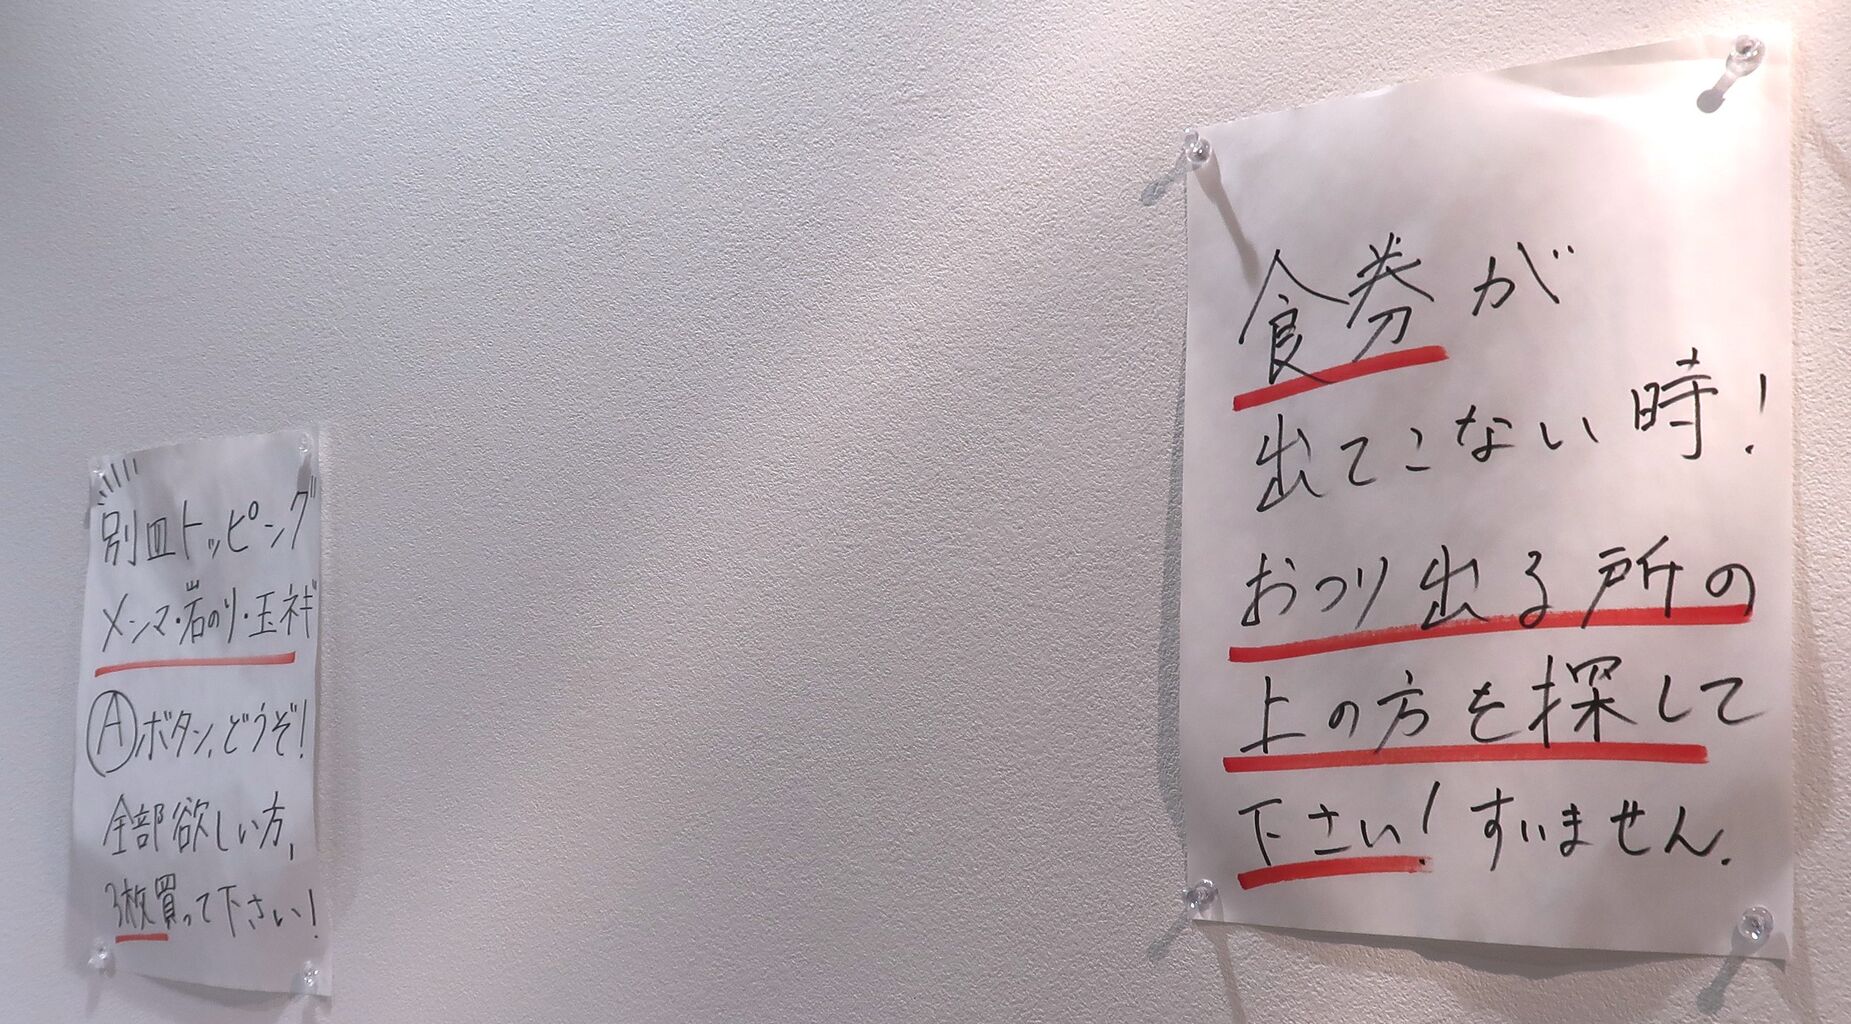 別皿トッピング
メンマ・岩のり・玉ネギ
Ⓐボタン、どうぞ!
全部欲しい方、
3枚買って下さい!
食券が
出てこない時!
おつり出る所の
上の方を探して
下さい!すいません.